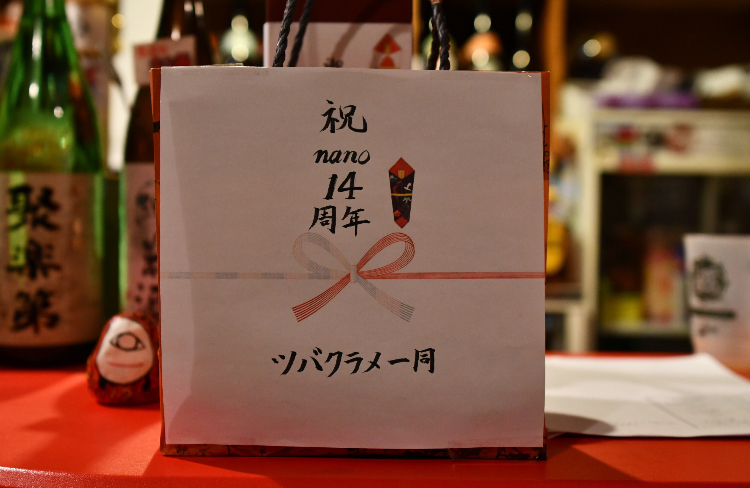 祝
nano
14
周年
ツバクラメ一同
聚楽第